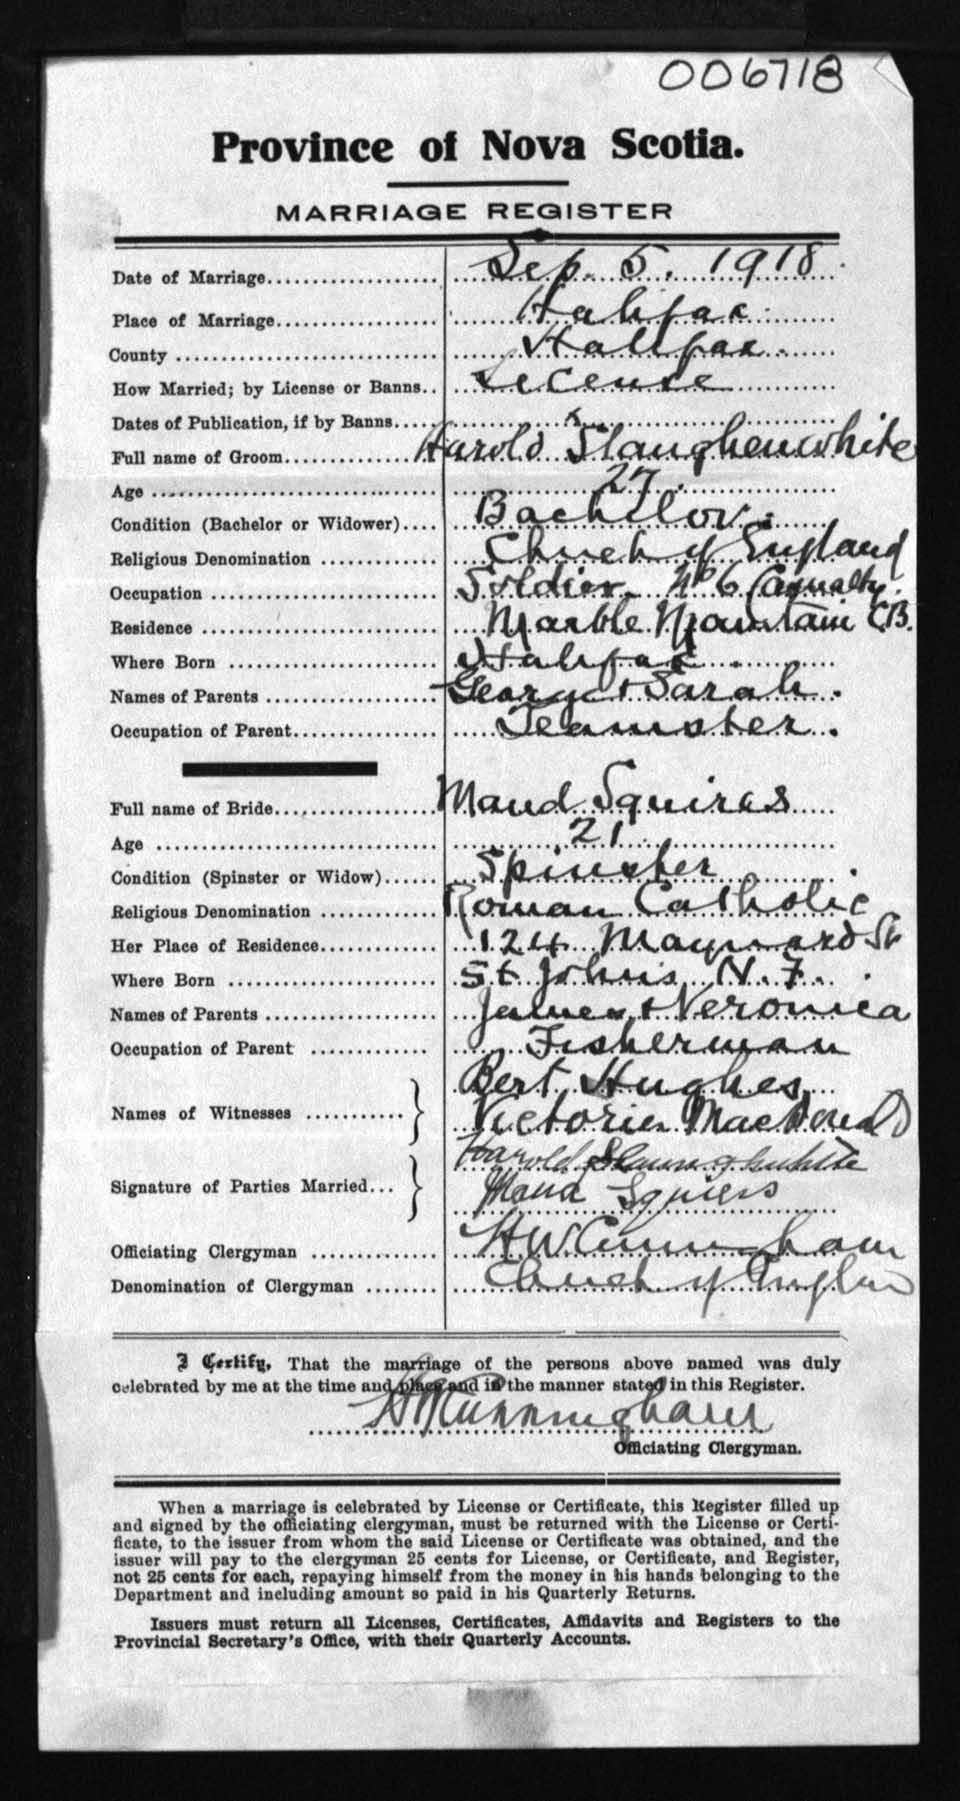 006718
Province of Nova Scotia.
MARRIAGE REGISTER
Date of Marriage.................... Sep. 5. 1918
Place of Marriage................... Halifax
County .............................. Halifax.
How Married; by License or Banns.. License
Dates of Publication, if by Banns.... x
Full name of Groom.................. Harold Slaughenwhite
Age ................................. 27.
Condition (Bachelor or Widower).... Bachelor.
Religious Denomination .............. Church of England
Occupation .......................... Soldier No 6 Casualty.
Residence ........................... Marble Mountain CB.
Where Born .......................... Halifax
Names of Parents .................... George + Sarah.
Occupation of Parent................. Teamster.
Full name of Bride................... Maud Squires
Age ................................. 21
Condition (Spinster or Widow)...... Spinster
Religious Denomination .............. Roman Catholic
Her Place of Residence.............. 124 Maynard St
Where Born .......................... St Johns N.F.
Names of Parents .................... James + Veronica
Occupation of Parent ............. Fisherman
Bert Hughes
Names of Witnesses ........... Victoria MacDonald
Harold Slaunghwhite
Signature of Parties Married... Maud Squiers
Officiating Clergyman .............. HWCunningham
Denomination of Clergyman ........ Church of England
I Certify, That the marriage of the persons above named was duly
celebrated by me at the time and place and in the manner stated in this Register.
HWCunningham
Officiating Clergyman.
When a marriage is celebrated by License or Certificate, this Register filled up
and signed by the officiating clergyman, must be returned with the License or Certi-
ficate, to the issuer from whom the said License or Certificate was obtained, and the
issuer will pay to the clergyman 25 cents for License, or Certificate, and Register,
not 25 cents for each, repaying himself from the money in his hands belonging to the
Department and including amount so paid in his Quarterly Returns.
Issuers must return all Licenses, Certificates, Affidavits and Registers to the
Provincial Secretary's Office, with their Quarterly Accounts.